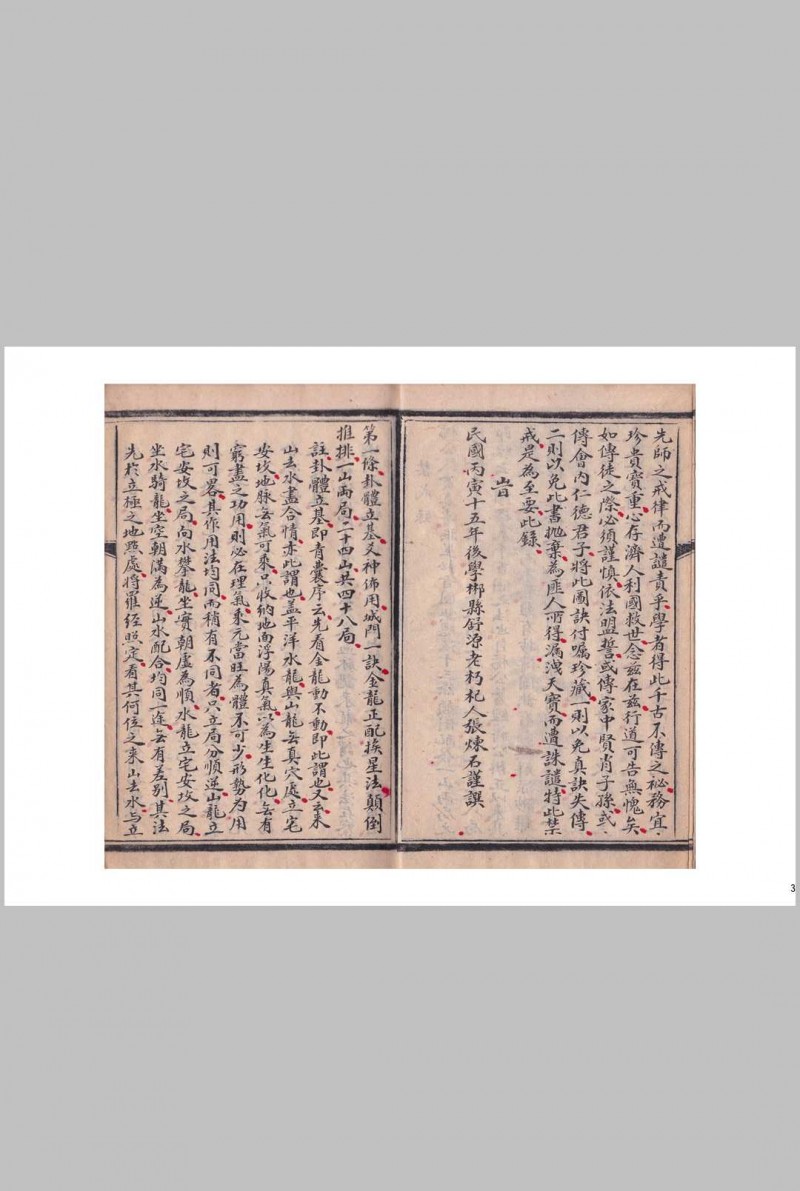 先師之戒律而遭譴責乎學者得此千古不傳之祕務宜
珍貴寶重心存濟人利國救世念茲在茲行道可告無愧矣
如傳徒之際必須謹慎依法盟誓或傳家中賢肖子孫或
傳會內仁德君子將此圖訣付囑珍藏一則以免真訣失傳
二則以免此書拋棄為匪人所得漏洩天寶而遭誅譴特此禁
戒是為至要此錄
旹
民國丙寅十五年後學郴縣舒源老朽杞人張煉石謹譔
第一條卦體立基爻神佈用城門一訣金龍正配挨星法顛倒
推排一山兩局二十四山共四十八局
註卦體立基即青囊序云先看金龍動不動即此謂也又云來
山去水盡合情亦此謂也盖平洋水龍與山龍無真穴處立宅
安坟地脉無氣可乘只收納地面浮陽真氣以為生生化化無有
窮盡之功用則必在理氣乘元當旺為體不可少形勢為用
則可畧其作用法均同而稍有不同者只立局分順逆山龍立
宅安坟之局向水攀龍坐實朝虛為順水龍立宅安坟之局
坐水騎龍坐空朝滿為逆山水配合均同一途無有差別其法
先於立極之地點處將羅經照定看其何位之來山去水與立
3